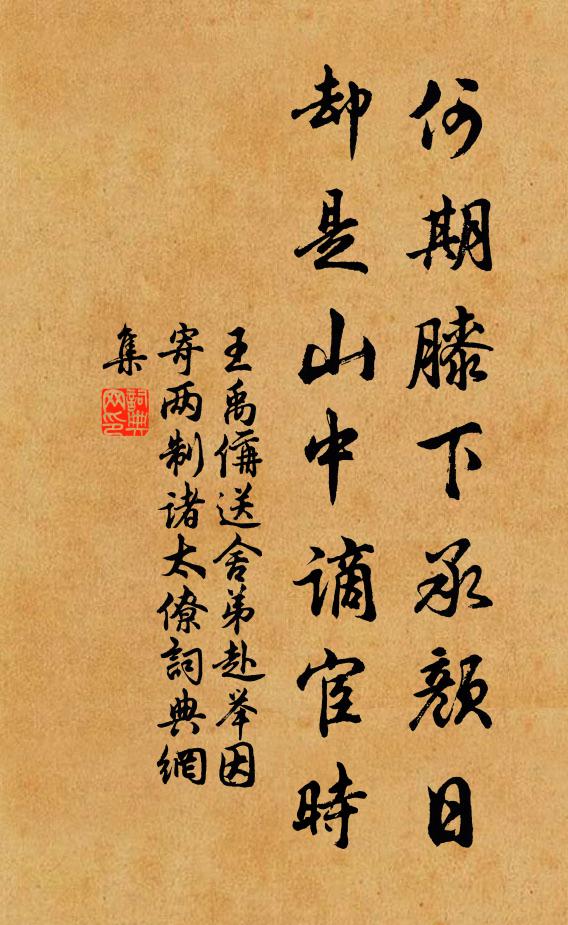 何期膝下承颜日
却是山中谪宦時
王禹偁送舍弟赴举因
寄两制诸大僚詞典網
集
詞典
网印